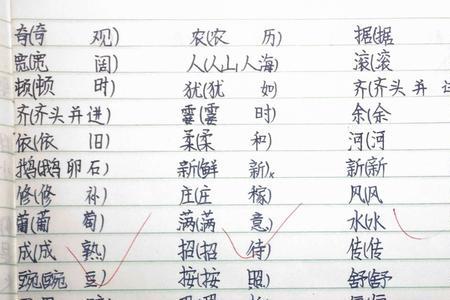 奇(奇 观) 农(农 历) 据(据
宽(宽 阔) 人(人山人海) 滚(滚
顿(顿 时) 犹(犹 如 齐(齐 头 并
齐(齐头并进) 霎(霎 时) 余(余
依(依 旧) 柔(柔 和) 河(河
鹅(鹅卵石) 新(鲜 新) 新(新
修(修 补) 庄(庄 稼) 风(风
葡(葡 萄) 满(满 意) 水(水
成(成 熟) 招(招 待) 传(传
豌(豌 豆) 按(按 照) 舒(舒